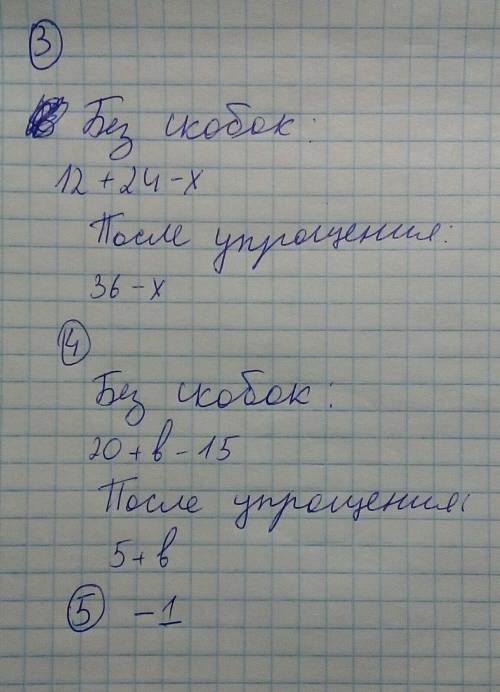 3
Без скобок:
12+24-x
После упрощения:
36-x
4
Без скобок:
20+в-15
После упрощения:
5+в
5 -1